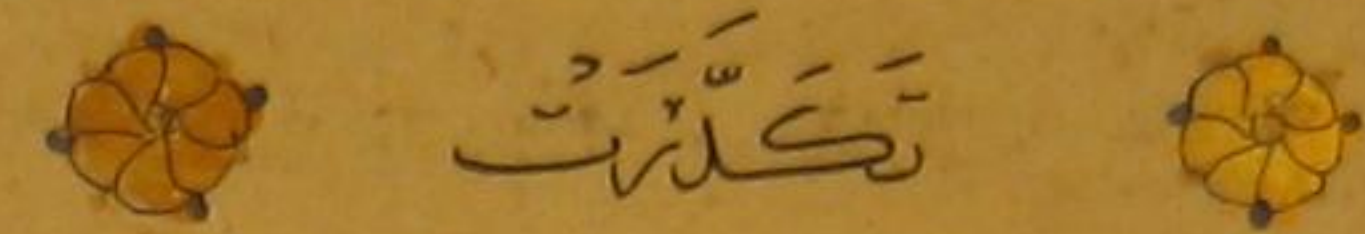 تَكَدَّرَتْ